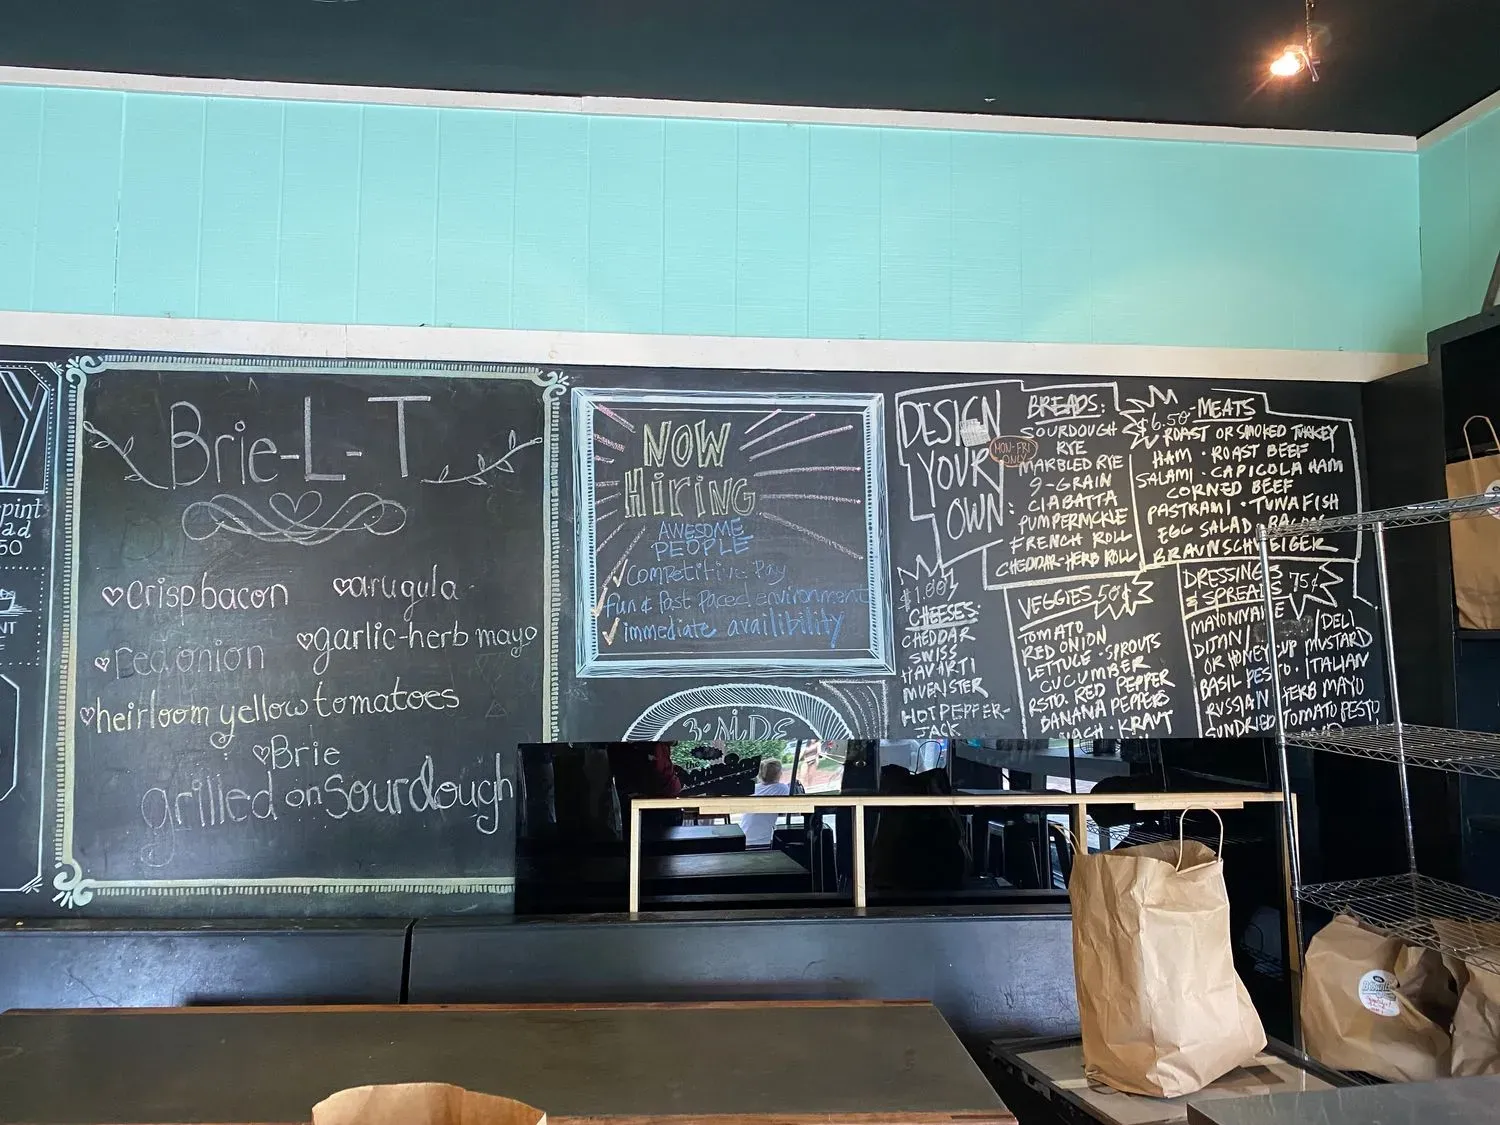 pint
ad
50
NT
Brie-L-T
crisp bacon
arugula
red onion
garlic-herb mayo
heirloom yellow tomatoes
Brie
grilled on sourdough
NOW
HIRING
AWESOME
PEOPLE
Competitive Pay
fun & fast paced environment
immediate availibility
DESIGN
YOUR
OWN:
MON-FRI
ONLY
BREADS:
SOURDOUGH
RYE
MARBLED RYE
9-GRAIN
CIABATTA
PUMPERNICKLE
FRENCH ROLL
CHEDDAR-HERB ROLL
$6.50 MEATS
ROAST OR SMOKED TURKEY
HAM · ROAST BEEF
SALAMI · CAPICOLA HAM
CORNED BEEF
PASTRAMI · TUNA FISH
EGG SALAD · BACON
BRAUNSCHWEIGER
$1.00
CHEESES:
CHEDDAR
SWISS
HAVARTI
MUENSTER
HOT PEPPER-
JACK
VEGGIES 50¢
TOMATO
RED ONION
LETTUCE · SPROUTS
CUCUMBER
RSTD. RED PEPPER
BANANA PEPPERS
KRAUT
DRESSINGS 75¢
& SPREADS
MAYONNAISE
DIJON DELI
OR HONEY CUP MUSTARD
BASIL PESTO · ITALIAN
RUSSIAN HERB MAYO
SUNDRIED TOMATO PESTO